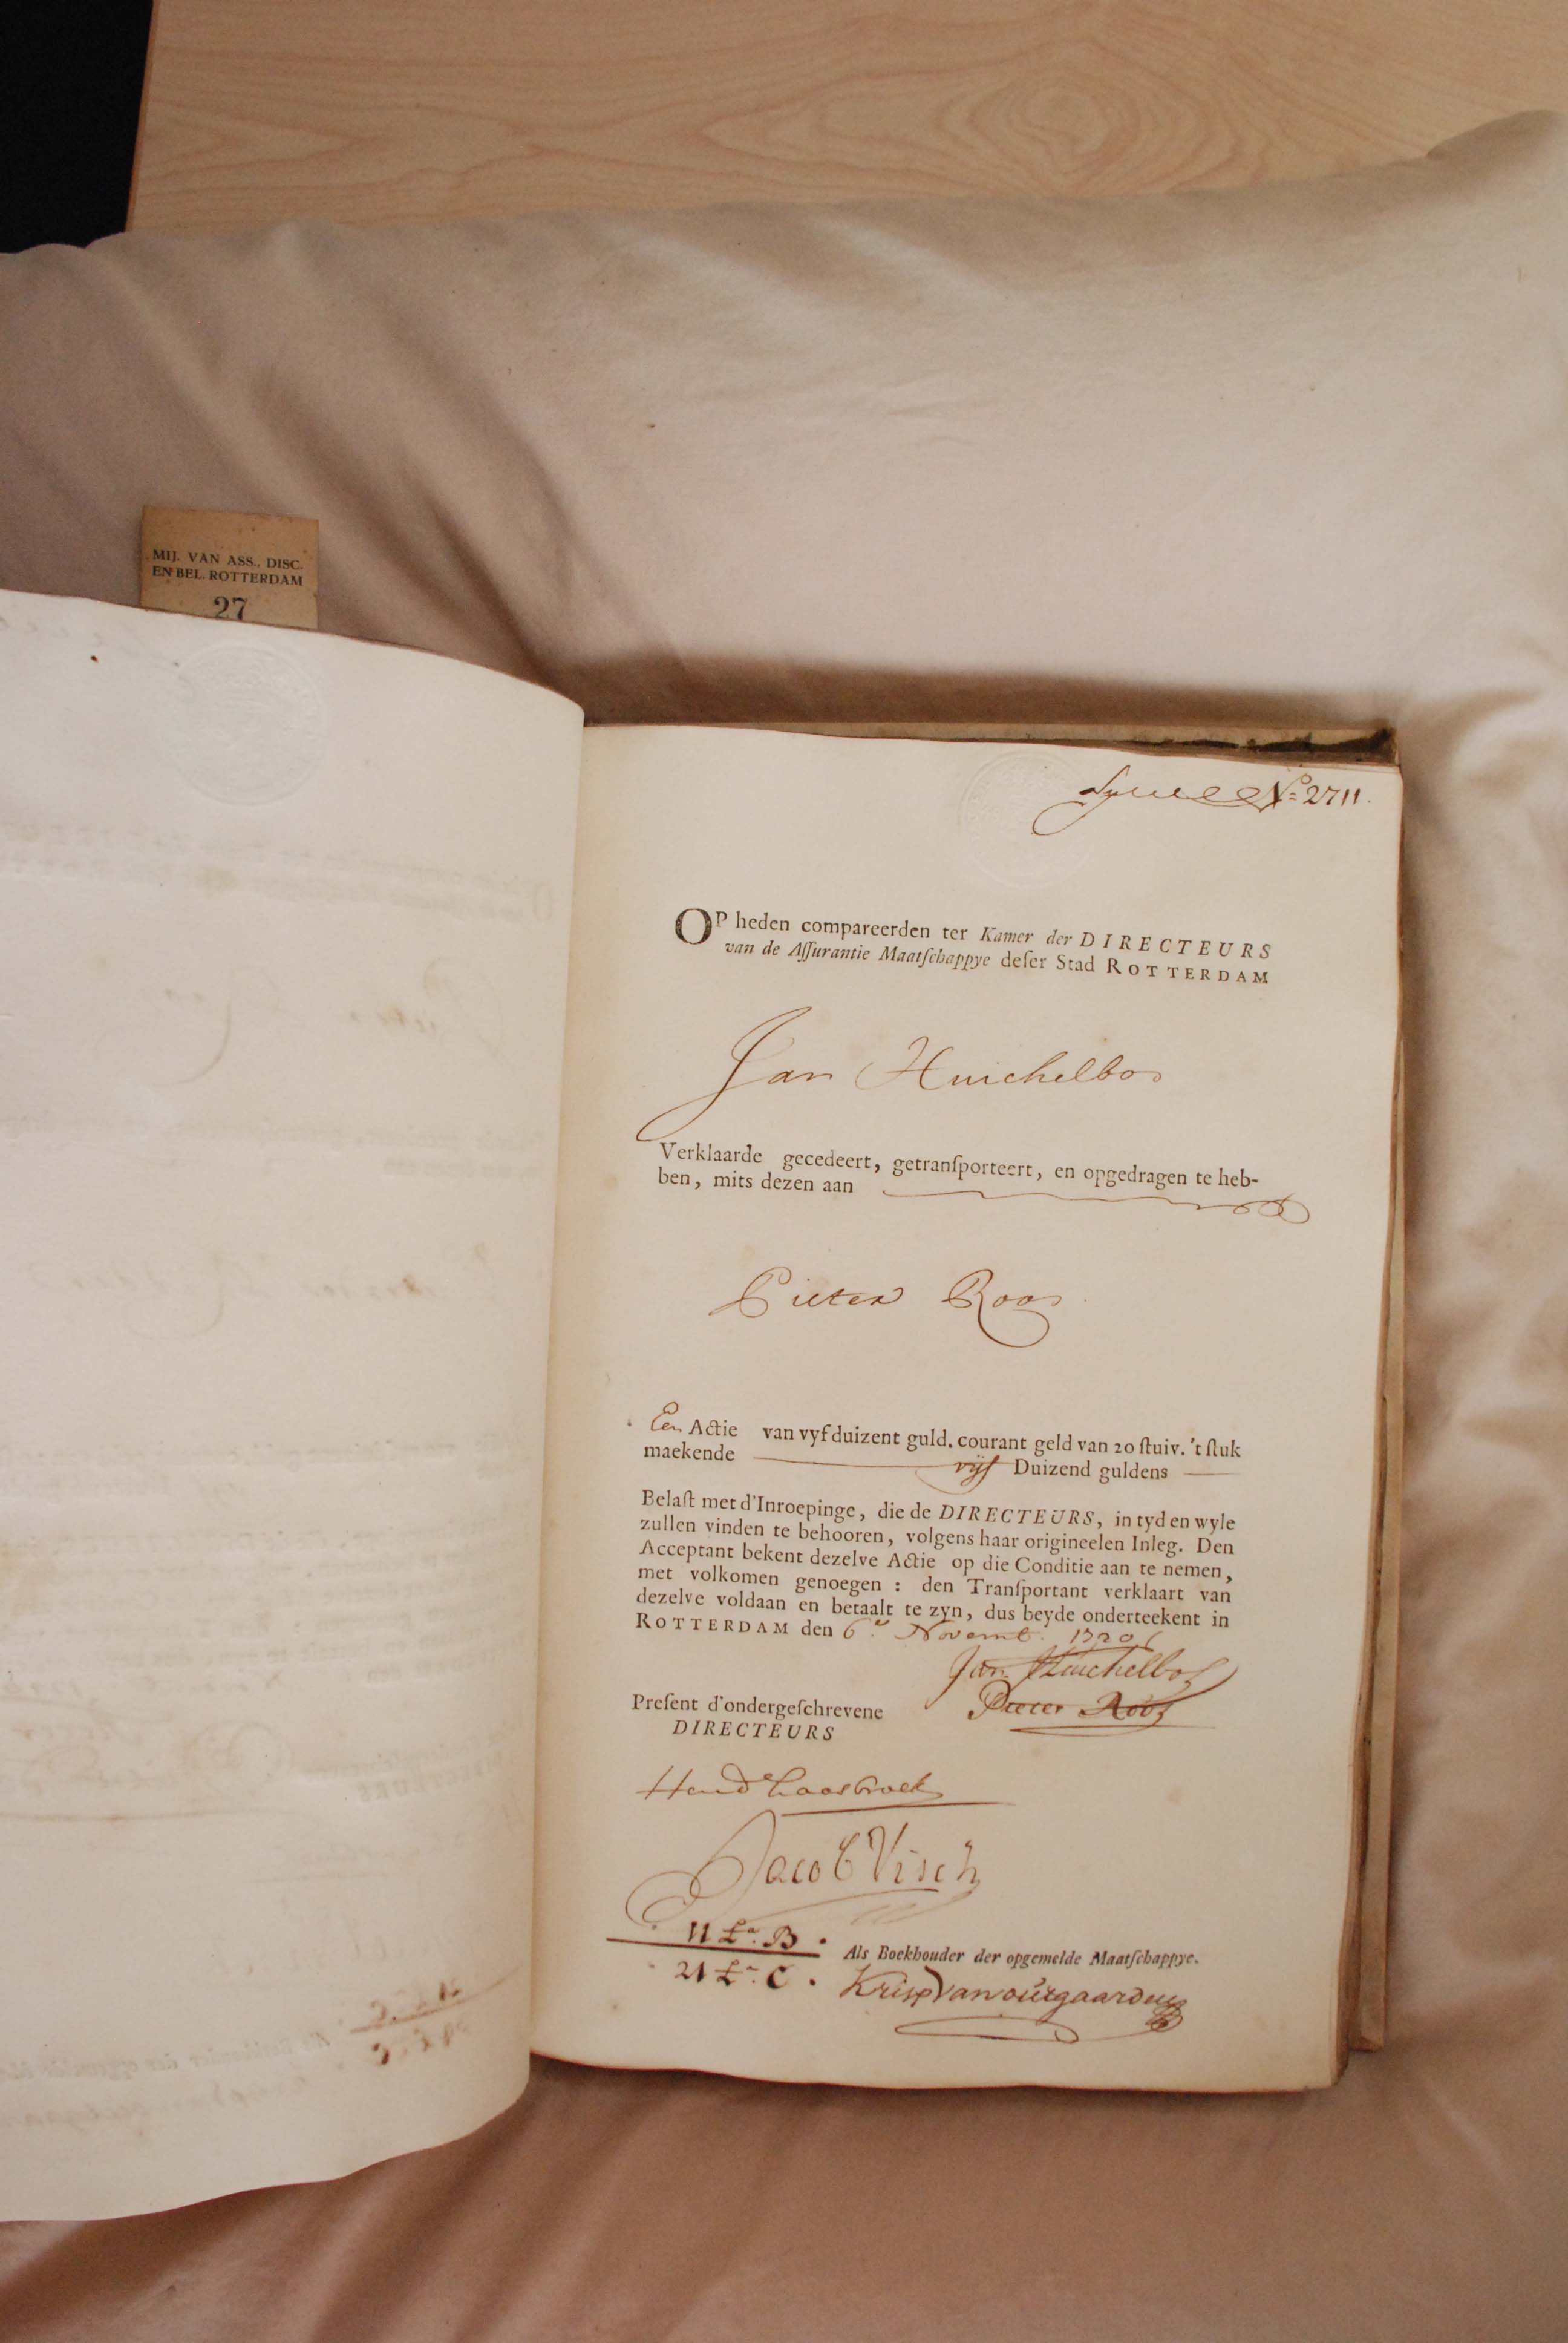 MIJ. VAN ASS., DISC.
EN BEL. ROTTERDAM
27
No. 2711.
OP heden compareerden ter Kamer der DIRECTEURS
van de Aſſurantie Maatſchappye deſer Stad ROTTERDAM
Jan Huichelbos
Verklaarde gecedeert, getranſporteert, en opgedragen te heb-
ben, mits dezen aan
Pieter Roos
Een Actie van vyf duizent guld. courant geld van 20 ſtuiv. 't ſtuk
maekende vijf Duizend guldens
Belaſt met d'Inroepinge, die de DIRECTEURS, in tyd en wyle
zullen vinden te behooren, volgens haar origineelen Inleg. Den
Acceptant bekent dezelve Actie op die Conditie aan te nemen,
met volkomen genoegen : den Tranſportant verklaart van
dezelve voldaan en betaalt te zyn, dus beyde onderteekent in
ROTTERDAM den 6e Novemb. 1720
Jan Huichelbos
Preſent d'ondergeſchrevene Pieter Roos
DIRECTEURS
Jacob Visch
11 La. B.
Als Boekhouder der opgemelde Maatſchappye.
21 La. C.